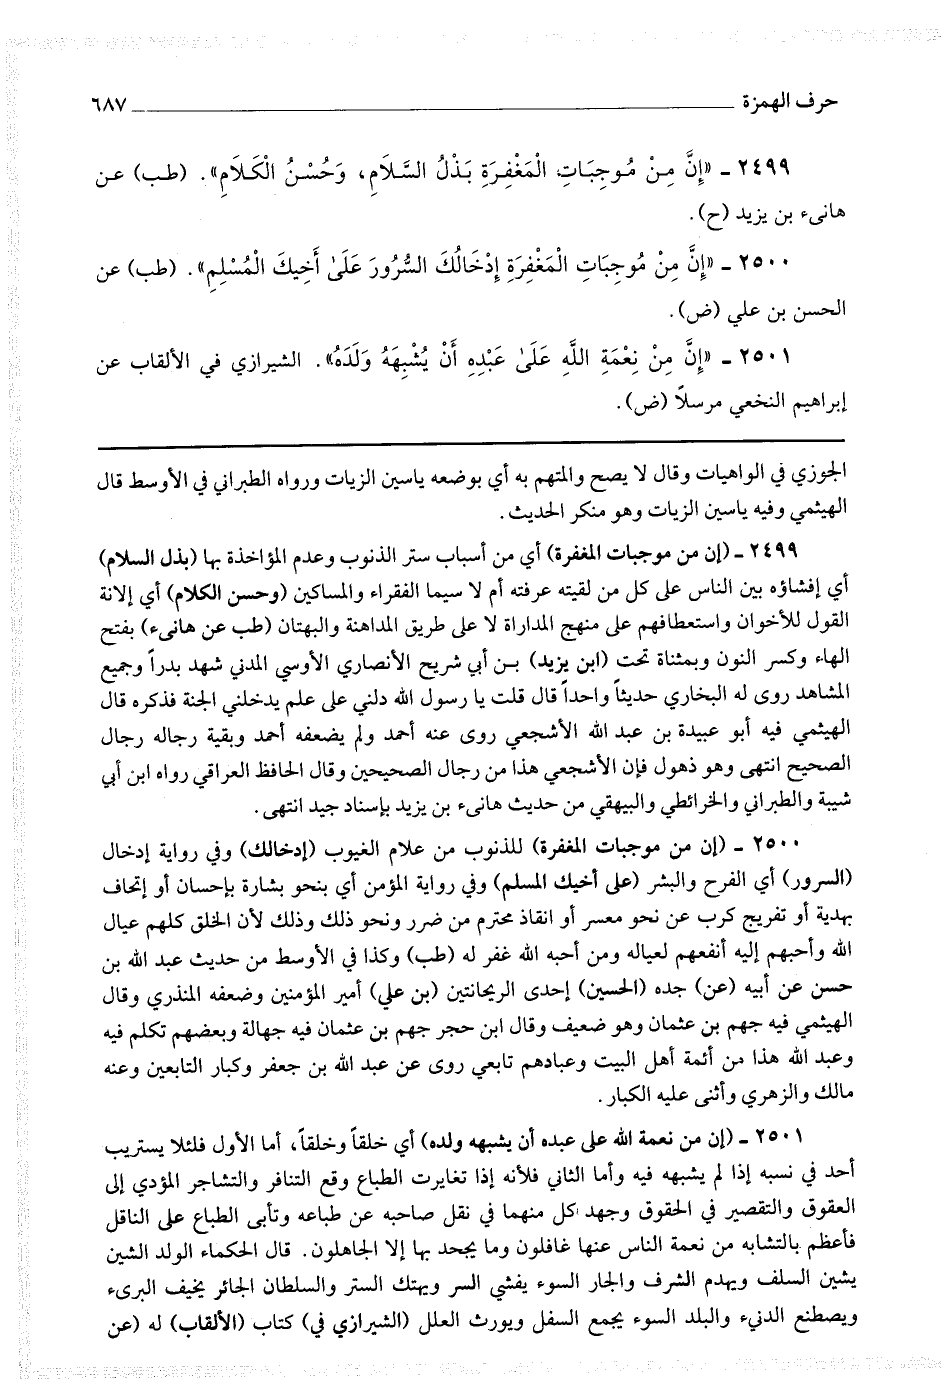 حرف الهمزة ٦٨٧
٢٤٩٩ ـ «إِنَّ مِنْ مُوجِبَاتِ الْمَغْفِرَةِ بَذْلُ السَّلَامِ، وَحُسْنُ الْكَلَامِ». (طب) عن
هانىء بن يزيد (ح).
٢٥٠٠ ـ «إِنَّ مِنْ مُوجِبَاتِ الْمَغْفِرَةِ إِدْخَالُكَ السُّرُورَ عَلَىٰ أَخِيكَ الْمُسْلِمِ». (طب) عن
الحسن بن علي (ض).
٢٥٠١ ـ «إِنَّ مِنْ نِعْمَةِ اللَّهِ عَلَىٰ عَبْدِهِ أَنْ يُشْبِهَهُ وَلَدُهُ». الشيرازي في الألقاب عن
إبراهيم النخعي مرسلاً (ض).
الجوزي في الواهيات وقال لا يصح والمتهم به أي بوضعه ياسين الزيات ورواه الطبراني في الأوسط قال
الهيثمي وفيه ياسين الزيات وهو منكر الحديث.
٢٤٩٩ ـ (إن من موجبات المغفرة) أي من أسباب ستر الذنوب وعدم المؤاخذة بها (بذل السلام)
أي إفشاؤه بين الناس على كل من لقيته عرفته أم لا سيما الفقراء والمساكين (وحسن الكلام) أي إلانة
القول للأخوان واستعطافهم على منهج المداراة لا على طريق المداهنة والبهتان (طب عن هانىء) بفتح
الهاء وكسر النون وبمثناة تحت (ابن يزيد) بن أبي شريح الأنصاري الأوسي المدني شهد بدراً وجميع
المشاهد روى له البخاري حديثاً واحداً قال قلت يا رسول الله دلني على علم يدخلني الجنة فذكره قال
الهيثمي فيه أبو عبيدة بن عبد الله الأشجعي روى عنه أحمد ولم يضعفه أحمد وبقية رجاله رجال
الصحيح انتهى وهو ذهول فإن الأشجعي هذا من رجال الصحيحين وقال الحافظ العراقي رواه ابن أبي
شيبة والطبراني والخرائطي والبيهقي من حديث هانىء بن يزيد بإسناد جيد انتهى.
٢٥٠٠ ـ (إن من موجبات المغفرة) للذنوب من علام الغيوب (إدخالك) وفي رواية إدخال
(السرور) أي الفرح والبشر (على أخيك المسلم) وفي رواية المؤمن أي بنحو بشارة بإحسان أو إتحاف
بهدية أو تفريج كرب عن نحو معسر أو انقاذ محترم من ضرر ونحو ذلك وذلك لأن الخلق كلهم عيال
الله وأحبهم إليه أنفعهم لعياله ومن أحبه الله غفر له (طب) وكذا في الأوسط من حديث عبد الله بن
حسن عن أبيه (عن) جده (الحسين) إحدى الريحانتين (بن علي) أمير المؤمنين وضعفه المنذري وقال
الهيثمي فيه جهم بن عثمان وهو ضعيف وقال ابن حجر جهم بن عثمان فيه جهالة وبعضهم تكلم فيه
وعبد الله هذا من أئمة أهل البيت وعبادهم تابعي روى عن عبد الله بن جعفر وكبار التابعين وعنه
مالك والزهري وأثنى عليه الكبار.
٢٥٠١ ـ (إن من نعمة الله على عبده أن يشبهه ولده) أي خلقاً وخلقاً، أما الأول فلئلا يستريب
أحد في نسبه إذا لم يشبهه فيه وأما الثاني فلأنه إذا تغايرت الطباع وقع التنافر والتشاجر المؤدي إلى
العقوق والتقصير في الحقوق وجهد كل منهما في نقل صاحبه عن طباعه وتأبى الطباع على الناقل
فأعظم بالتشابه من نعمة الناس عنها غافلون وما يجحد بها إلا الجاهلون. قال الحكماء الولد الشين
يشين السلف ويهدم الشرف والجار السوء يفشي السر ويهتك الستر والسلطان الجائر يخيف البرىء
ويصطنع الدنيء والبلد السوء يجمع السفل ويورث العلل (الشيرازي في) كتاب (الألقاب) له (عن